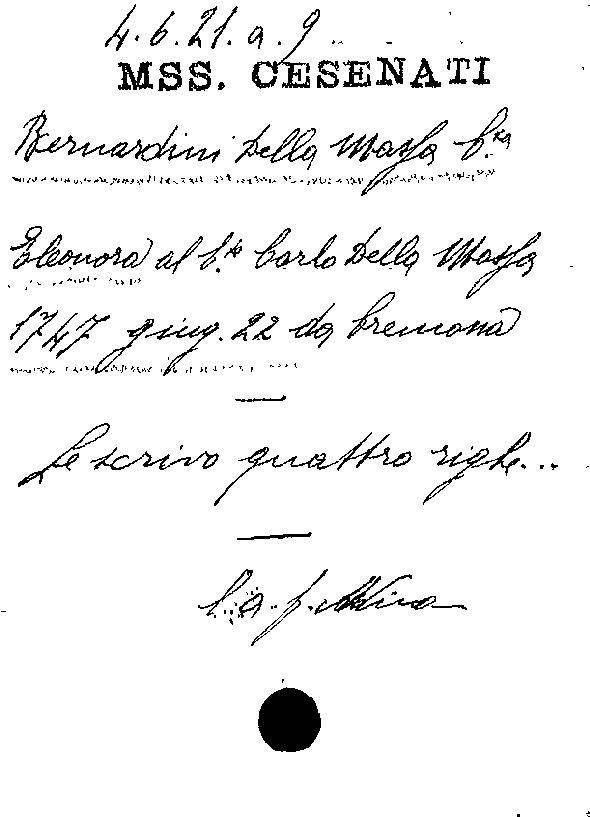 4.6.21.a.9.
MSS. CESENATI
Bernardini Della Massa C.sa
Eleonora al C.te Carlo Della Massa
1747 giug. 22 da Cremona
Le scrivo quattro righe...